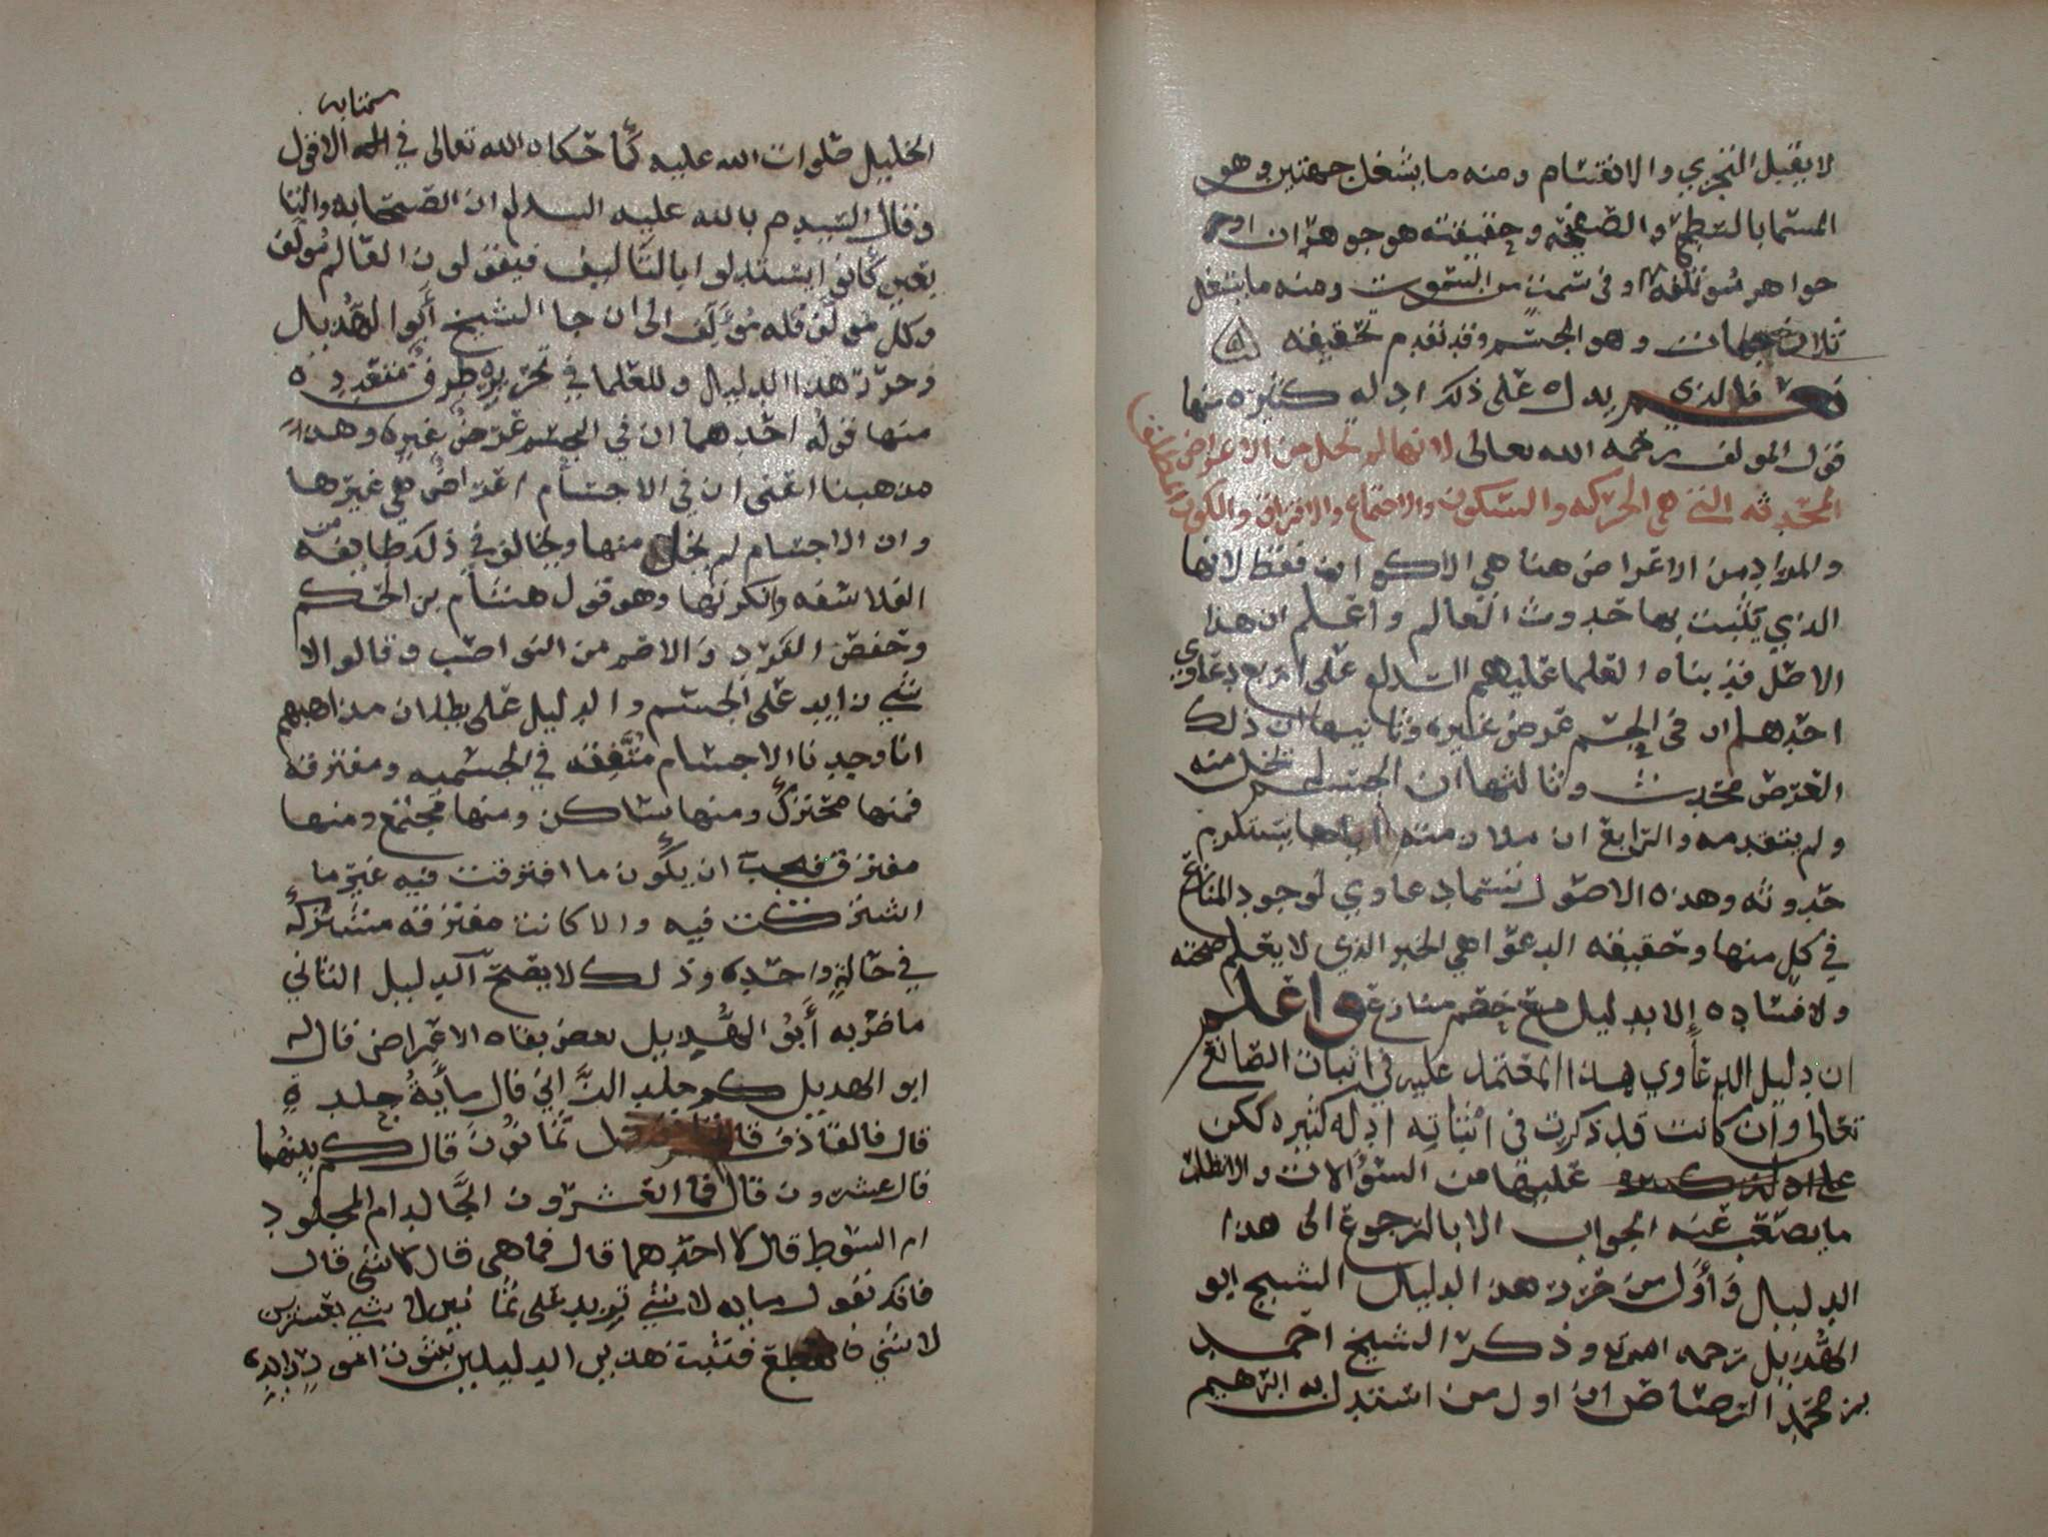 لا يقبل التجزي والانقسام ومنه ما يشغل جهتين وهو
المسما بالسطح والصفحة وحقيقته هو جوهران او
جواهر مؤتلفة في سمت من السموت ومنه ما يشغل
ثلاث جهات وهو الجسم وقد تقدم تحقيقه
فالذي يدل على ذلك ادله كثيره منها
قول المولف رحمه الله تعالى لانها لم تخل من الاعراض
المحدثه التي هي الحركه والسكون والاجتماع والافتراق والكون
والمراد من الاعراض هنا هي الاكوان فقط لانها
الذي يثبت بها حدوث العالم واعلم ان هذا
الاصل قد بناه العلما عليهم السلم على اربع دعاوي
احدها ان في الجسم عرض غيره وثانيها ان ذلك
العرض محدث وثالثها ان الجسم لم يخل منه
ولم يتقدمه والرابع ان ملازمته اياها يستلزم
حدوثه وهذه الاصول تسما دعاوي لوجود المنازع
في كل منها وحقيقه الدعوا هي الخبر الذي لا يعلم صحته
ولا فساده إلا بدليل مع خصم منازع واعلم
ان دليل الدعاوي هذا المعتمد عليه في اثبات الصانع
تعالى وان كانت قد ذكرت في اثباته ادله كثيره لكن
عليها من السؤالات والا
ما يصعب عنه الجواب الا بالرجوع الى هذا
الدليل وأول من حرر هذا الدليل الشيخ ابو
الهذيل رحمه الله وذكر الشيخ احمد
بن محمد الرصاص ان اول من استدل به ابرهيم
كتابه
الخليل صلوات الله عليه كما حكاه الله تعالى في الافول
وقال السيد م بالله عليه السلم ان الصحابه والتا
بعين كانوا يستدلوا بالتاليف فيقولون العالم مؤلف
وكل مولف فله مؤلف الى ان جا الشيخ أبو الهذيل
وحرر هذا الدليل وللعلما في تحريره طرق متعدده
منها قوله احدهما ان في الجسم عرض غيره وهذا
مذهبنا اعني ان في الاجسام اعراض هي غيرها
وان الاجسام لم يخل منها ويخالف في ذلك طايفه من
الفلاسفه وانكرونها وهو قول هشام بن الحكم
وحفص الفرد والاصم من النواصب وقالوا لا
شي زايد على الجسم والدليل على بطلان مذاهبهم
انا وجدنا الاجسام متفقه في الجسميه ومفترقه
فمنها متحرك ومنها ساكن ومنها مجتمع ومنها
مفترق فيجب ان يكون ما افترقت فيه غير ما
اشتركت فيه والا كانت مفترقه مشتركه
في حالة واحده وذلك لا يصح الدليل الثاني
ما ضربه أبو الهذيل بعض نفاه الاعراض قال له
ابو الهديل كم جلد الزاني قال مأية جلدة
قال فالقاذف قال ثمانون قال كم بينهما
قال عشرون قال فما العشرون الجالد ام المجلود
ام السوط قال لا احدهما قال فما هي قال لا شي قال
فانك تقول مايه لا شي تزيد على ثمانين لا شي بعشرين
لا شي فانقطع فثبت بهذين الدليلين ثبوت امور زايده